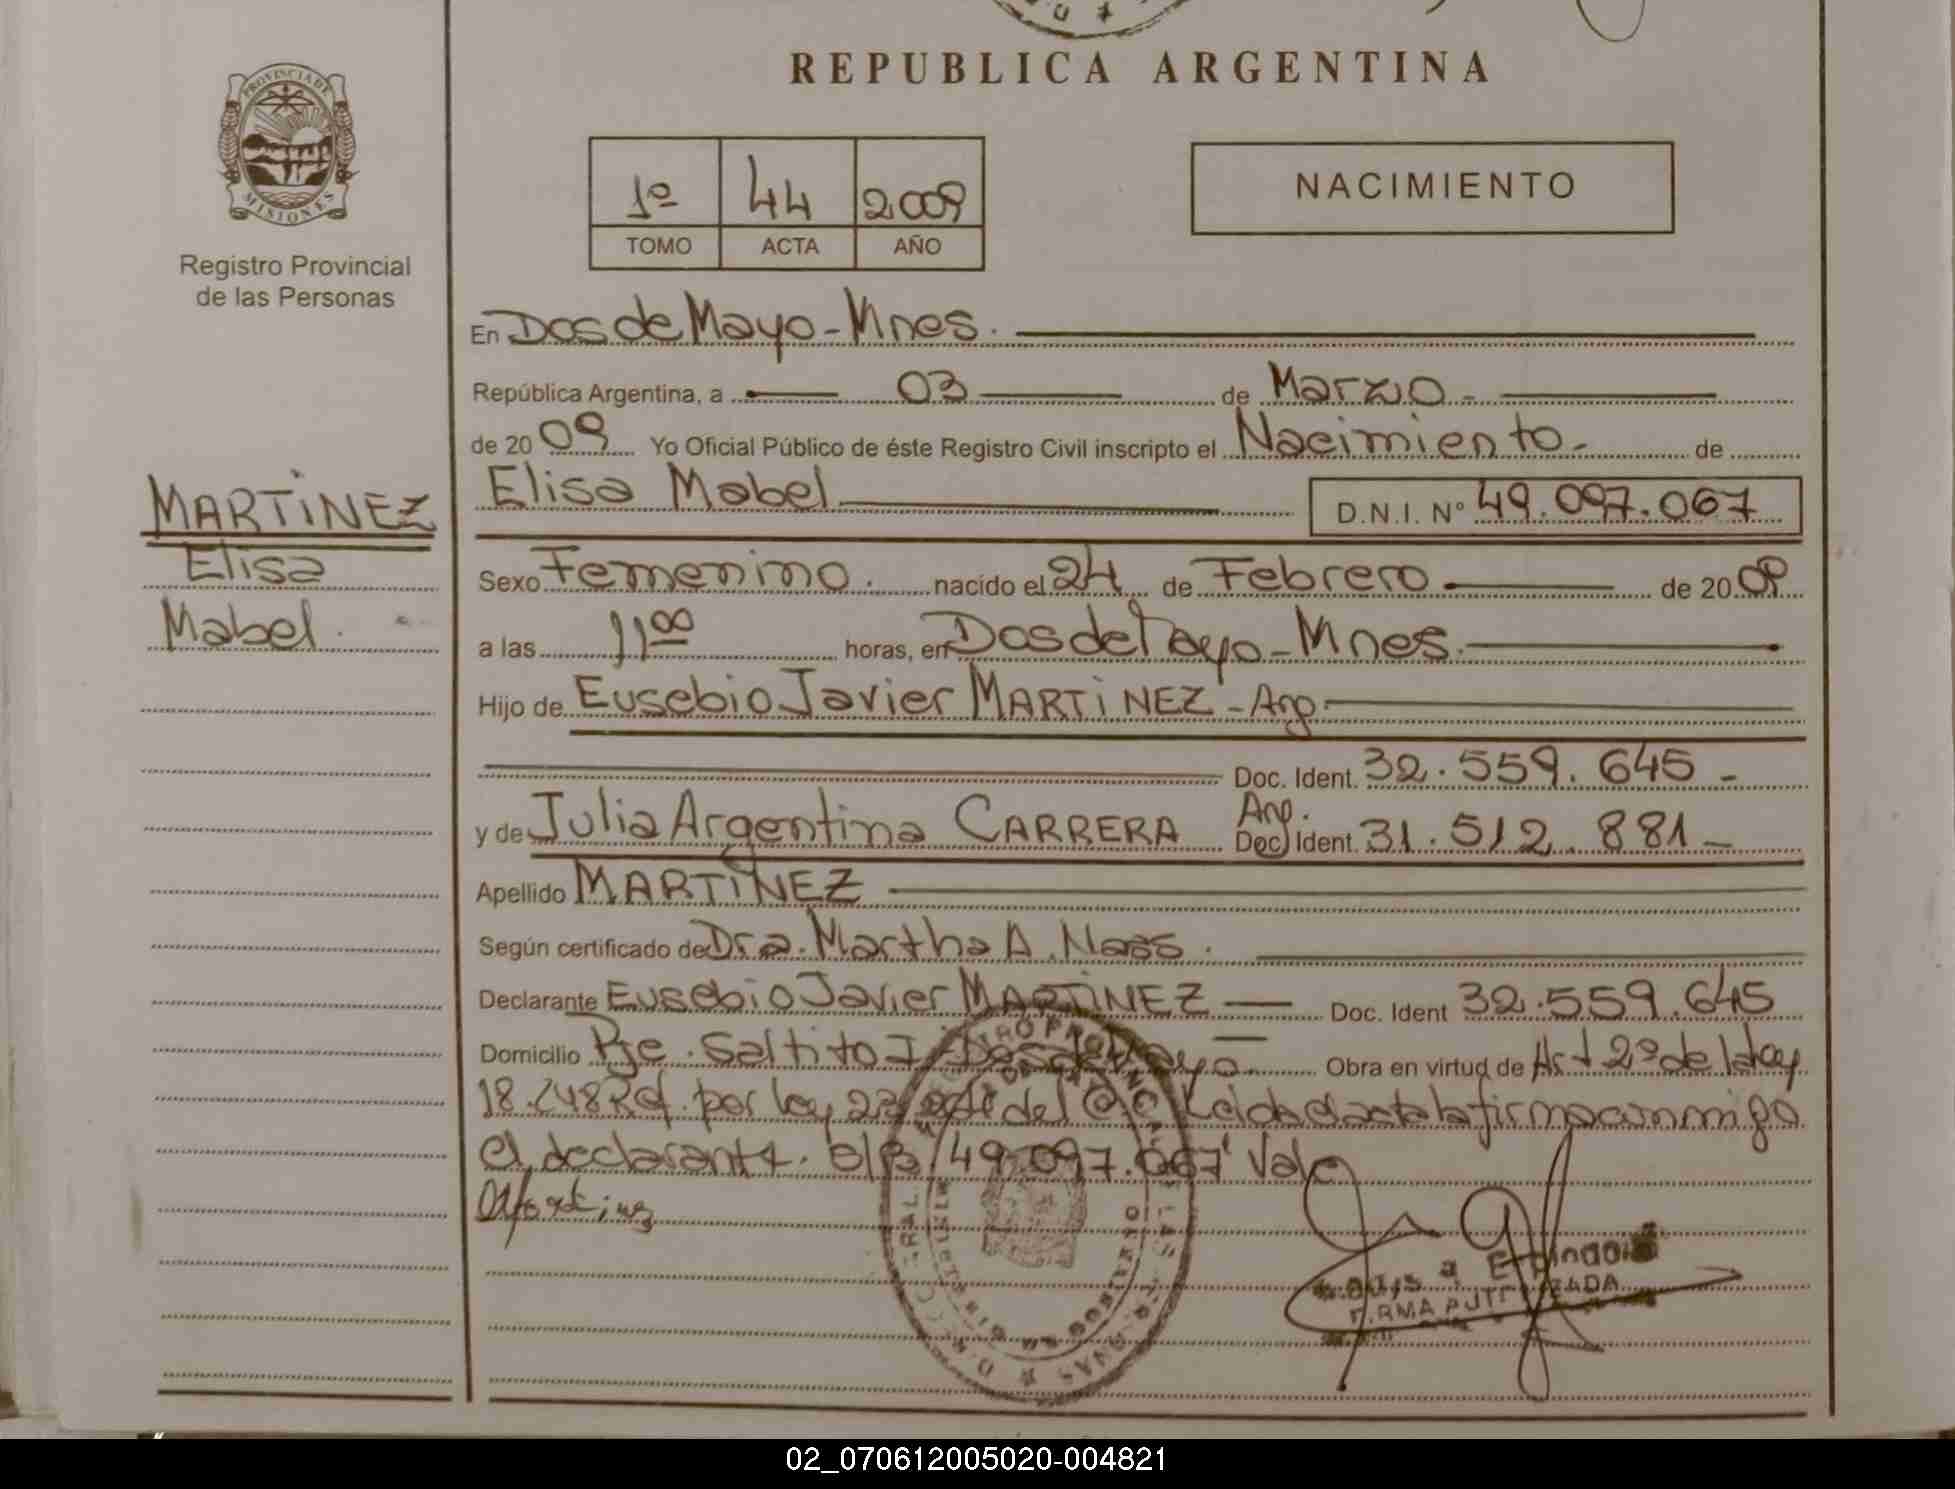 REPUBLICA ARGENTINA
PROVINCIA DE
MISIONES
Registro Provincial
de las Personas
1º 44 2009
TOMO ACTA AÑO
NACIMIENTO
En Dos de Mayo - Mnes.
República Argentina, a 03 de Marzo -
de 20 09 Yo Oficial Público de éste Registro Civil inscripto el Nacimiento - de
Elisa Mabel D.N.I. Nº 49.097.067
MARTINEZ
Elisa
Mabel.
Sexo Femenino. nacido el 24 de Febrero de 20 09
a las 11 00 horas, en Dos de Mayo - Mnes.
Hijo de Eusebio Javier MARTINEZ - Arg.
Doc. Ident. 32.559.645 -
y de Julia Argentina CARRERA Arg. Doc. Ident. 31.512.881 -
Apellido MARTINEZ
Según certificado de Dra. Martha A.
Declarante Eusebio Javier MARTINEZ Doc. Ident 32.559.645
Domicilio Pje. Saltito I - Dos de Mayo. Obra en virtud de Art 2º de la ley
18. por ley del Leida esta la firma conmigo
el declarante. 49.097.067 Vale
FIRMA AUTORIZADA
02_070612005020-004821